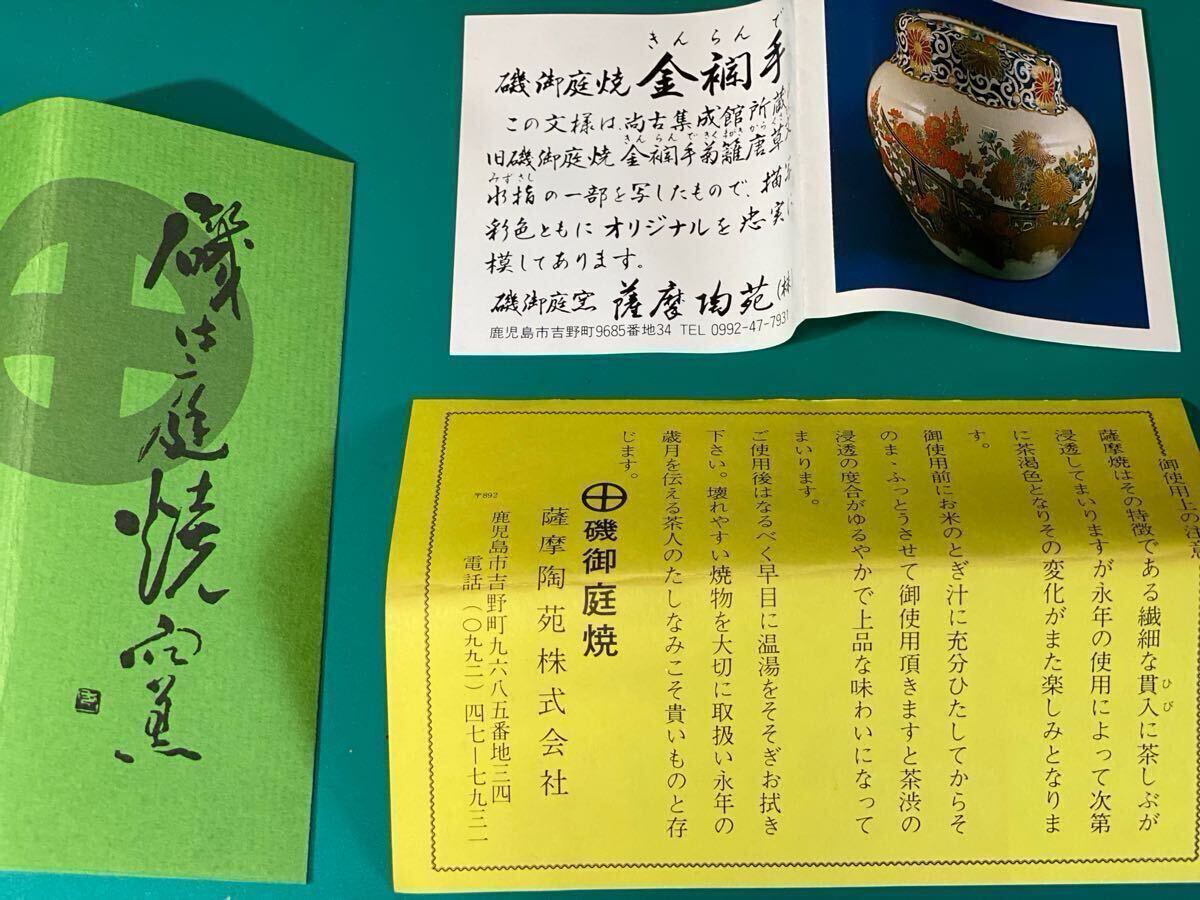 磯御庭焼窯
きんらんで
磯御庭焼 金襴手
この文様は、尚古集成館所蔵
きんらんできくまがきからくさ
旧磯御庭焼 金襴手菊籬唐草
みずさし
水指の一部を写したもので、描
彩色ともにオリジナルを忠実に
模してあります。
磯御庭窯 薩摩陶苑(株
鹿児島市吉野町9685番地34 TEL 0992-47-7931
御使用上の注意
薩摩焼はその特徴である繊細な貫入に茶しぶが
ひび
浸透してまいりますが永年の使用によって次第
に茶渇色となりその変化がまた楽しみとなりま
す。
御使用前にお米のとぎ汁に充分ひたしてからそ
のまゝふっとうさせて御使用頂きますと茶渋の
浸透の度合がゆるやかで上品な味わいになって
まいります。
ご使用後はなるべく早目に温湯をそそぎお拭き
下さい。壊れやすい焼物を大切に取扱い永年の
歳月を伝える茶人のたしなみこそ貴いものと存
じます。
磯御庭焼
薩摩陶苑株式会社
〒892
鹿児島市吉野町九六八五番地三四
電話(〇九九二)四七―七九三一